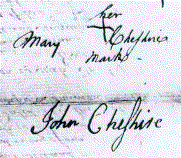 her
Mary X Cheshire
Mark
John Cheſhire